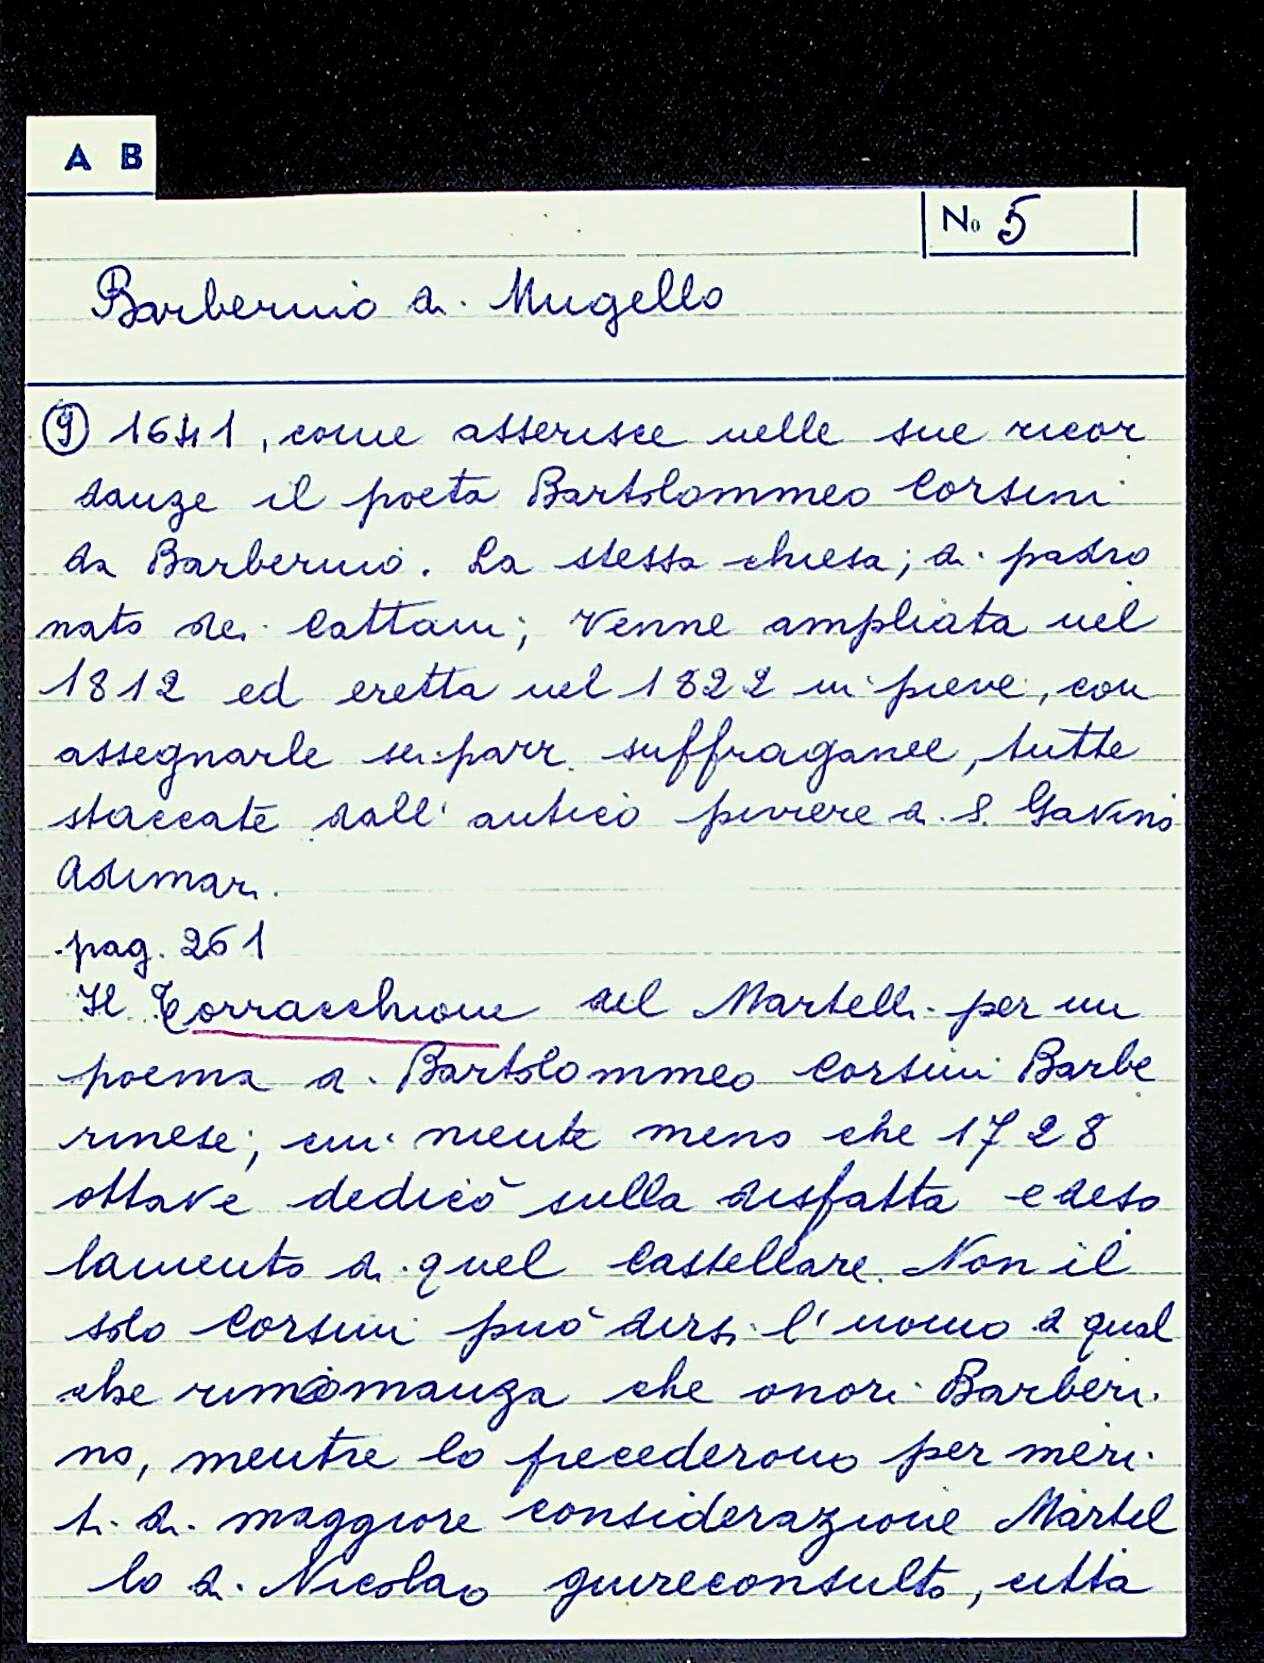 A B
No 5
Barberino di Mugello
9 1641, come asserisce nelle sue ricor
danze il poeta Bartolommeo Corsini
da Barberino. La stessa chiesa; di padro
nato dei Cattani; venne ampliata nel
1812 ed eretta nel 1822 in pieve, con
assegnarle sei parr. suffraganee, tutte
staccate dall' antico piviere di S. Gavino
Adimari.
pag. 261
Il Torracchione del Martelli per un
poema di Bartolommeo Corsini Barbe
rinese; cui niente meno che 1728
ottave dedicò sulla disfatta e deso
lamento di quel Castellare. Non il
solo Corsini può dirsi l'uomo di qual
che rinomanza che onori Barberi
no, mentre lo precederono per meri
ti di maggiore considerazione Martel
lo di Nicolao giureconsulto, citta